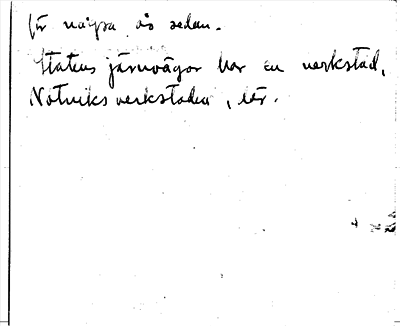 för några år sedan.
Statens järnvägar har en verkstad,
Notviksverkstaden, här.